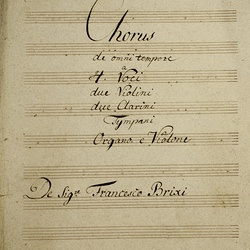 Chorus
de omni tempore
a
4. Voci
due Violini
due Clarini
Tympani
Organo e Violone
De Sigre Francesco Brixi